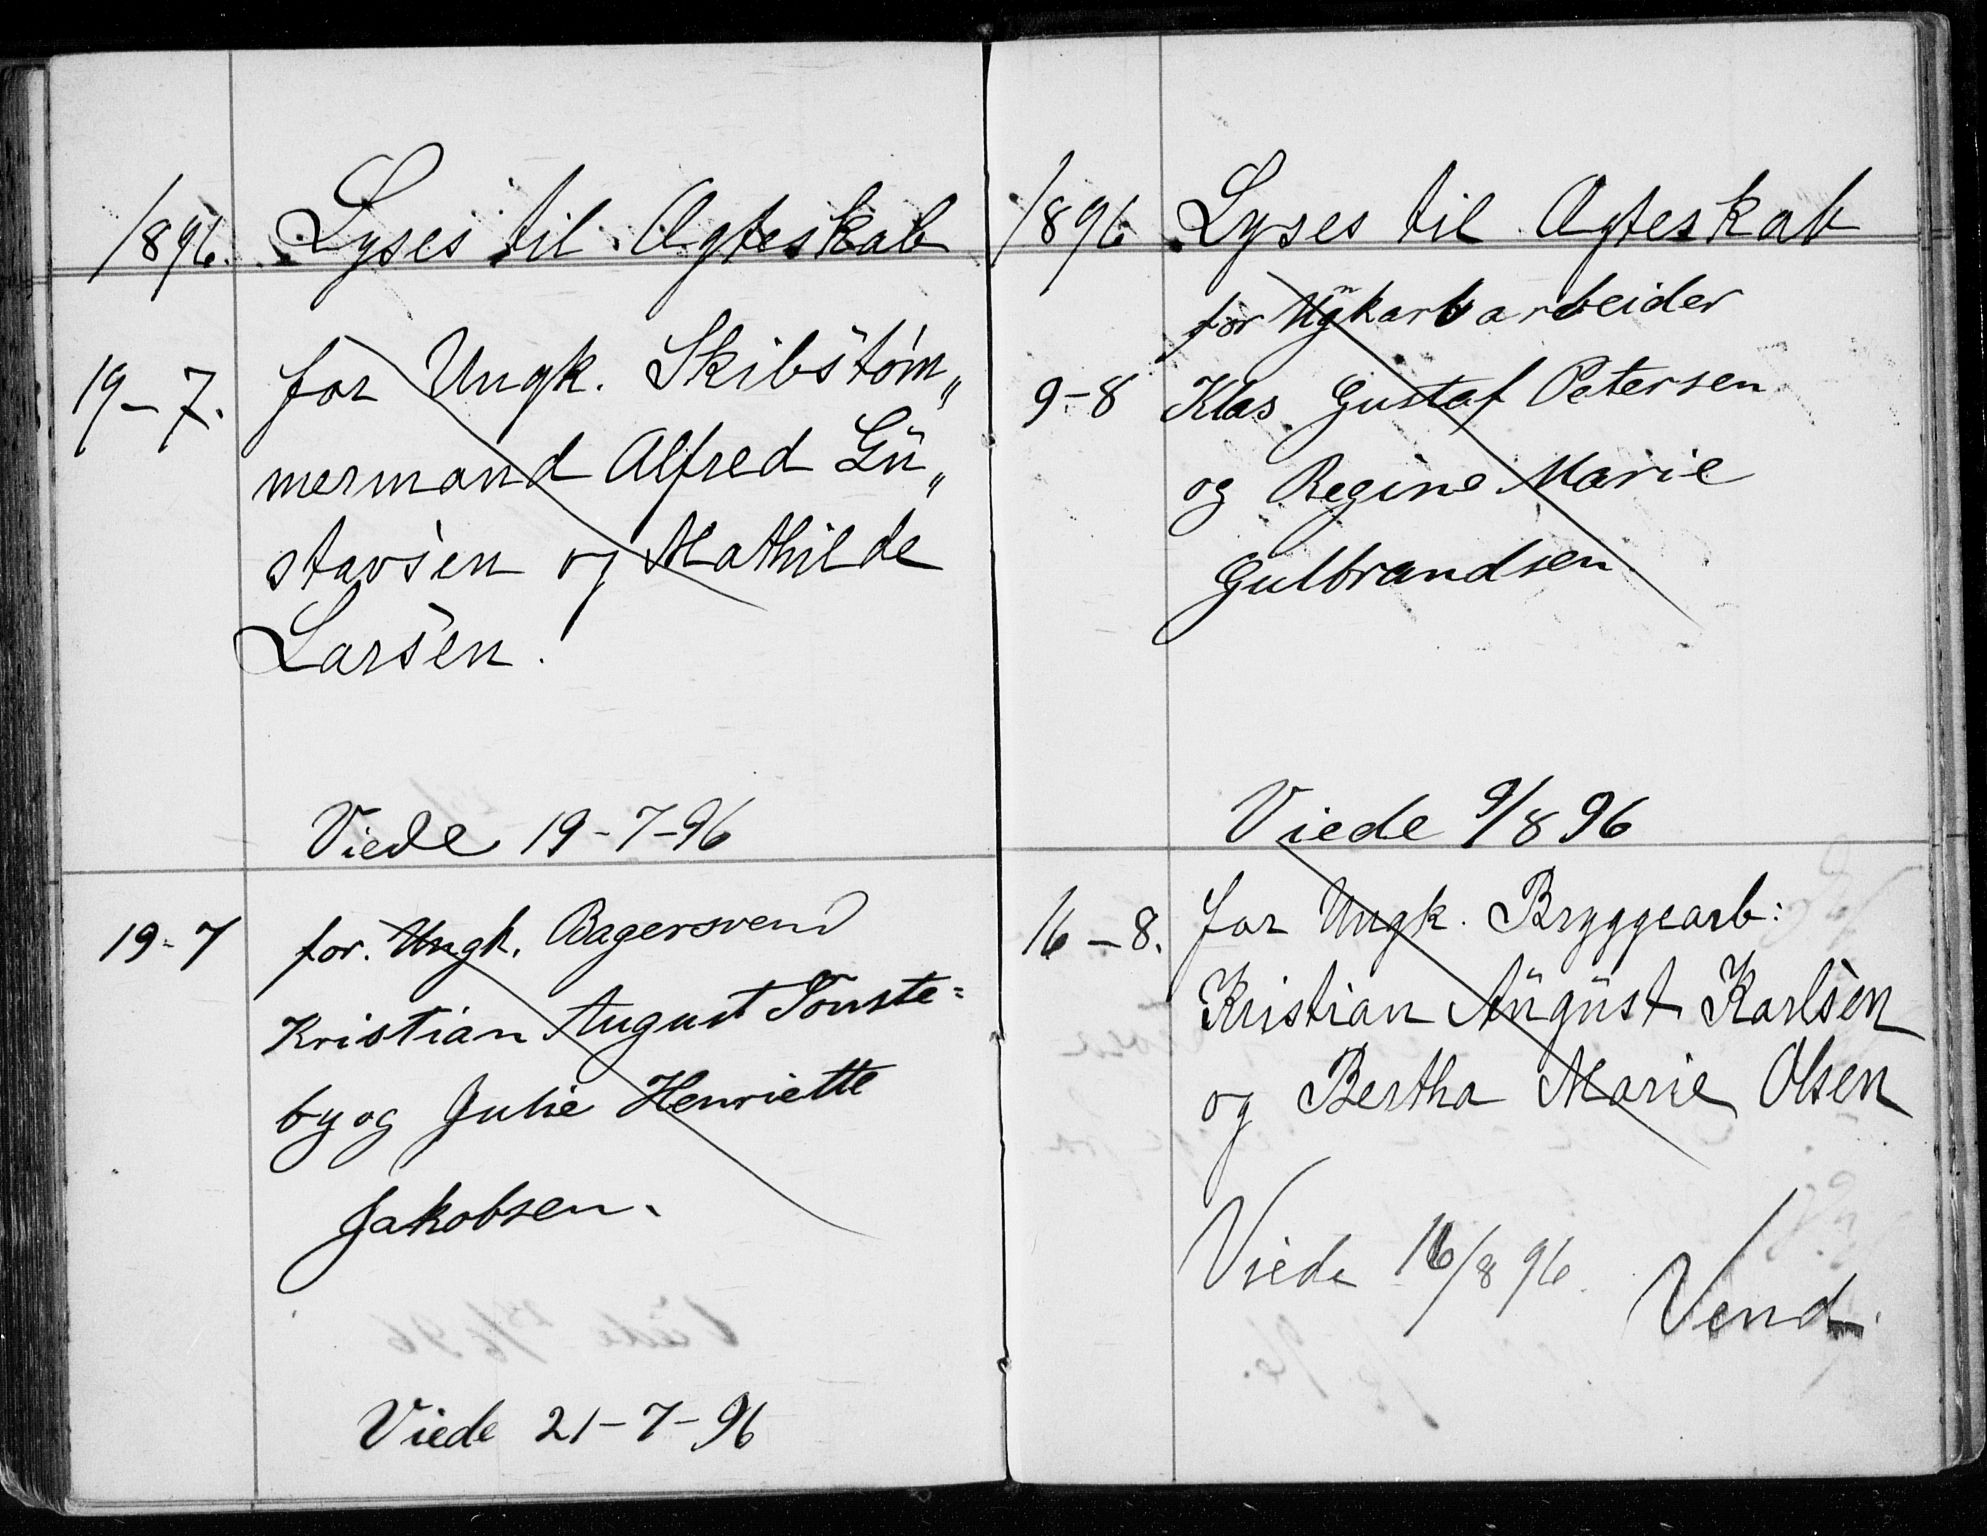 1896. Lyses til Ægteskab
19-7. for Ungk. Skibstøm„
mermand Alfred Gu„
stavsen og Mathilde
Larsen.
Viede 19-7-96
19-7 for. Ungk. Bagersvend
Kristian August Tonste=
by og Julie Henriette
Jakobsen.
Viede 21-7-96
1896 Lyses til Ægteskab
for arbeider
9-8 Klas Gustaf Petersen
og Regine Marie
Gulbrandsen
Viede 9/8 96
16-8. for Ungk. Bryggearb:
Kristian August Karlsen
og Bertha Marie Olsen
Viede 16/8 96.
Vend.